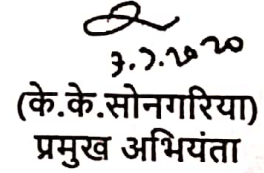 3.7.2020
(के.के.सोनगरिया)
प्रमुख अभियंता